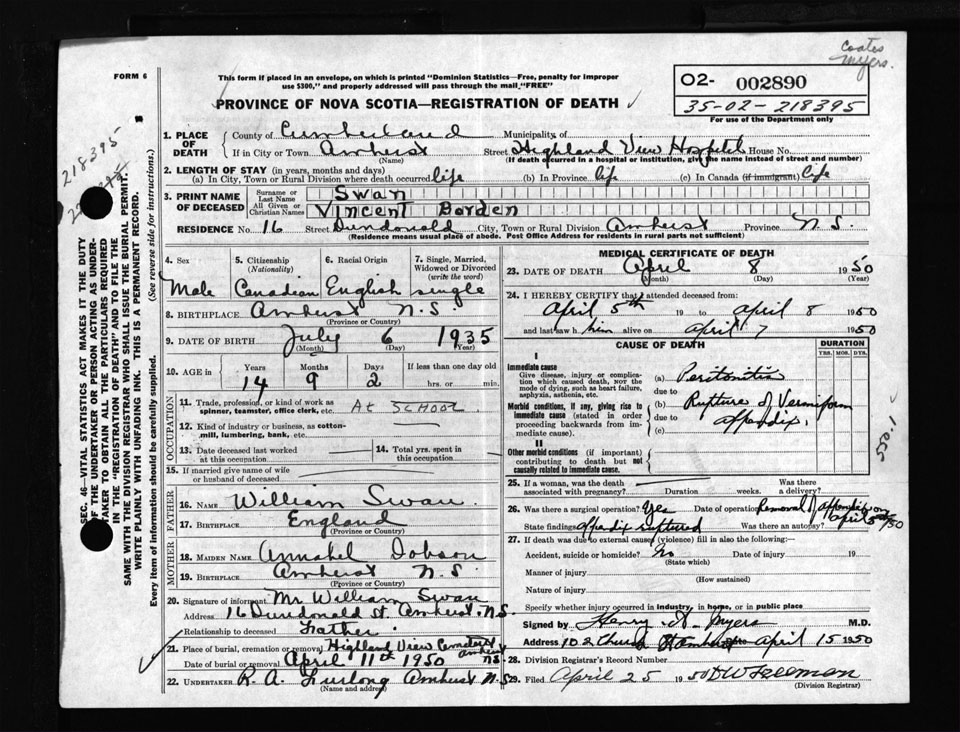 Coates
Myers.
FORM 6
This form if placed in an envelope, on which is printed "Dominion Statistics—Free, penalty for improper
use $300," and properly addressed will pass through the mail "FREE"
PROVINCE OF NOVA SCOTIA—REGISTRATION OF DEATH
O2- 002890
35-02-218395
For use of the Department only
218395
SEC. 46—VITAL STATISTICS ACT MAKES IT THE DUTY
OF THE UNDERTAKER OR PERSON ACTING AS UNDER-
TAKER TO OBTAIN ALL THE PARTICULARS REQUIRED
IN THE "REGISTRATION OF DEATH" AND TO FILE THE
SAME WITH THE DIVISION REGISTRAR WHO SHALL ISSUE THE BURIAL PERMIT.
WRITE PLAINLY WITH UNFADING INK. THIS IS A PERMANENT RECORD.
Every item of information should be carefully supplied. (See reverse side for instructions.)
1. PLACE OF DEATH
County of Cumberland Municipality of
If in City or Town Amherst Street Highland View Hospital House No.
(Name) (If death occurred in a hospital or institution, give the name instead of street and number)
2. LENGTH OF STAY (in years, months and days)
(a) In City, Town or Rural Division where death occurred life (b) In Province life (c) In Canada (if immigrant) life
3. PRINT NAME OF DECEASED
Surname or Last Name Swan
All Given or Christian Names Vincent Borden
RESIDENCE No. 16 Street Dundonald City, Town or Rural Division Amherst Province N.S.
(Residence means usual place of abode. Post Office Address for residents in rural parts not sufficient)
4. Sex Male
5. Citizenship (Nationality) Canadian
6. Racial Origin English
7. Single, Married, Widowed or Divorced (write the word) single
8. BIRTHPLACE Amherst N.S.
(Province or Country)
9. DATE OF BIRTH July 6 1935
(Month) (Day) (Year)
10. AGE in Years Months Days If less than one day old
14 9 2 hrs. or min.
OCCUPATION
11. Trade, profession or kind of work as
spinner, teamster, office clerk, etc. At SCHOOL
12. Kind of industry or business, as cotton-
mill, lumbering, bank, etc.
13. Date deceased last worked at this occupation
14. Total yrs. spent in this occupation
15. If married give name of wife
or husband of deceased
FATHER
16. NAME William Swan
17. BIRTHPLACE England
(Province or Country)
MOTHER
18. MAIDEN NAME Annabel Dobson
19. BIRTHPLACE Amherst N.S.
(Province or Country)
20. Signature of informant Mr William Swan
Address 16 Dundonald St. Amherst, N.S.
Relationship to deceased Father
21. Place of burial, cremation or removal Highland View Cemetery Amherst N.S.
Date of burial or removal April 11th 1950
22. UNDERTAKER R. A. Furlong Amherst N.S.
(Name and address)
MEDICAL CERTIFICATE OF DEATH
23. DATE OF DEATH April 8 1950
(Month) (Day)
24. I HEREBY CERTIFY that I attended deceased from:
April 5th 19 to April 8 1950
and last saw him alive on April 7 1950
CAUSE OF DEATH DURATION
YRS. MOS. DYS.
I
Immediate cause
Give disease, injury or complica-
tion which caused death, NOT the
mode of dying, such as heart failure,
asphyxia, asthenia, etc.
(a) Peritonitis
due to
Morbid conditions, if any, giving rise to
immediate cause (stated in order
proceeding backwards from im-
mediate cause).
(b) Rupture of Vermiform
due to
appendix.
(c)
II
Other morbid conditions (if important)
contributing to death but not
causally related to immediate cause.
550.1
25. If a woman, was the death
associated with pregnancy? Duration weeks. Was there a delivery?
26. Was there a surgical operation? Yes Date of operation Removal of appendix April 5/50
State findings appendix ruptured Was there an autopsy?
27. If death was due to external causes (violence) fill in also the following:—
Accident, suicide or homicide? No Date of injury 19
(State which)
Manner of injury
(How sustained)
Nature of injury
Specify whether injury occurred in industry, in home, or in public place
Signed by Henry Myers M.D.
Address 102 Church St Amherst Date April 15 1950
28. Division Registrar's Record Number
29. Filed April 25 1950 D W Freeman
(Division Registrar)